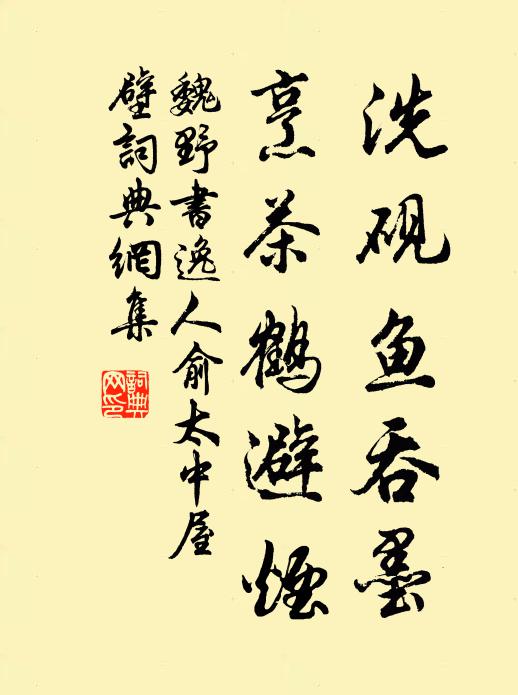 洗砚鱼吞墨
烹茶鹤避烟
魏野书逸人俞太中屋
壁词典網集
詞典
网印